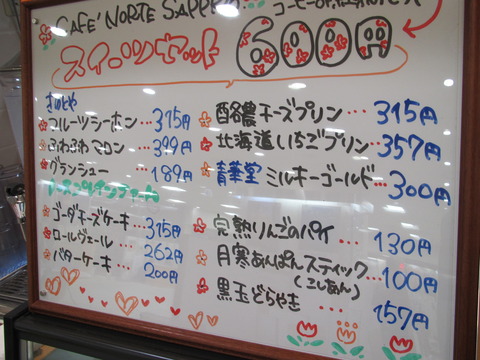 CAFE' NORTE SAPPORO
スイーツセット 600円
きのとや
フルーツシーホン…375円
ふわふわマロン…399円
グランシュー…189円
ゴーダチーズケーキ…315円
ロールヴェール…262円
バターケーキ…200円
酪農チーズプリン…315円
北海道いちごプリン…357円
青華堂 ミルキーゴールド…300円
完熟りんごのパイ…130円
月寒あんぱんスティック(こしあん)…100円
黒玉どらやき…157円